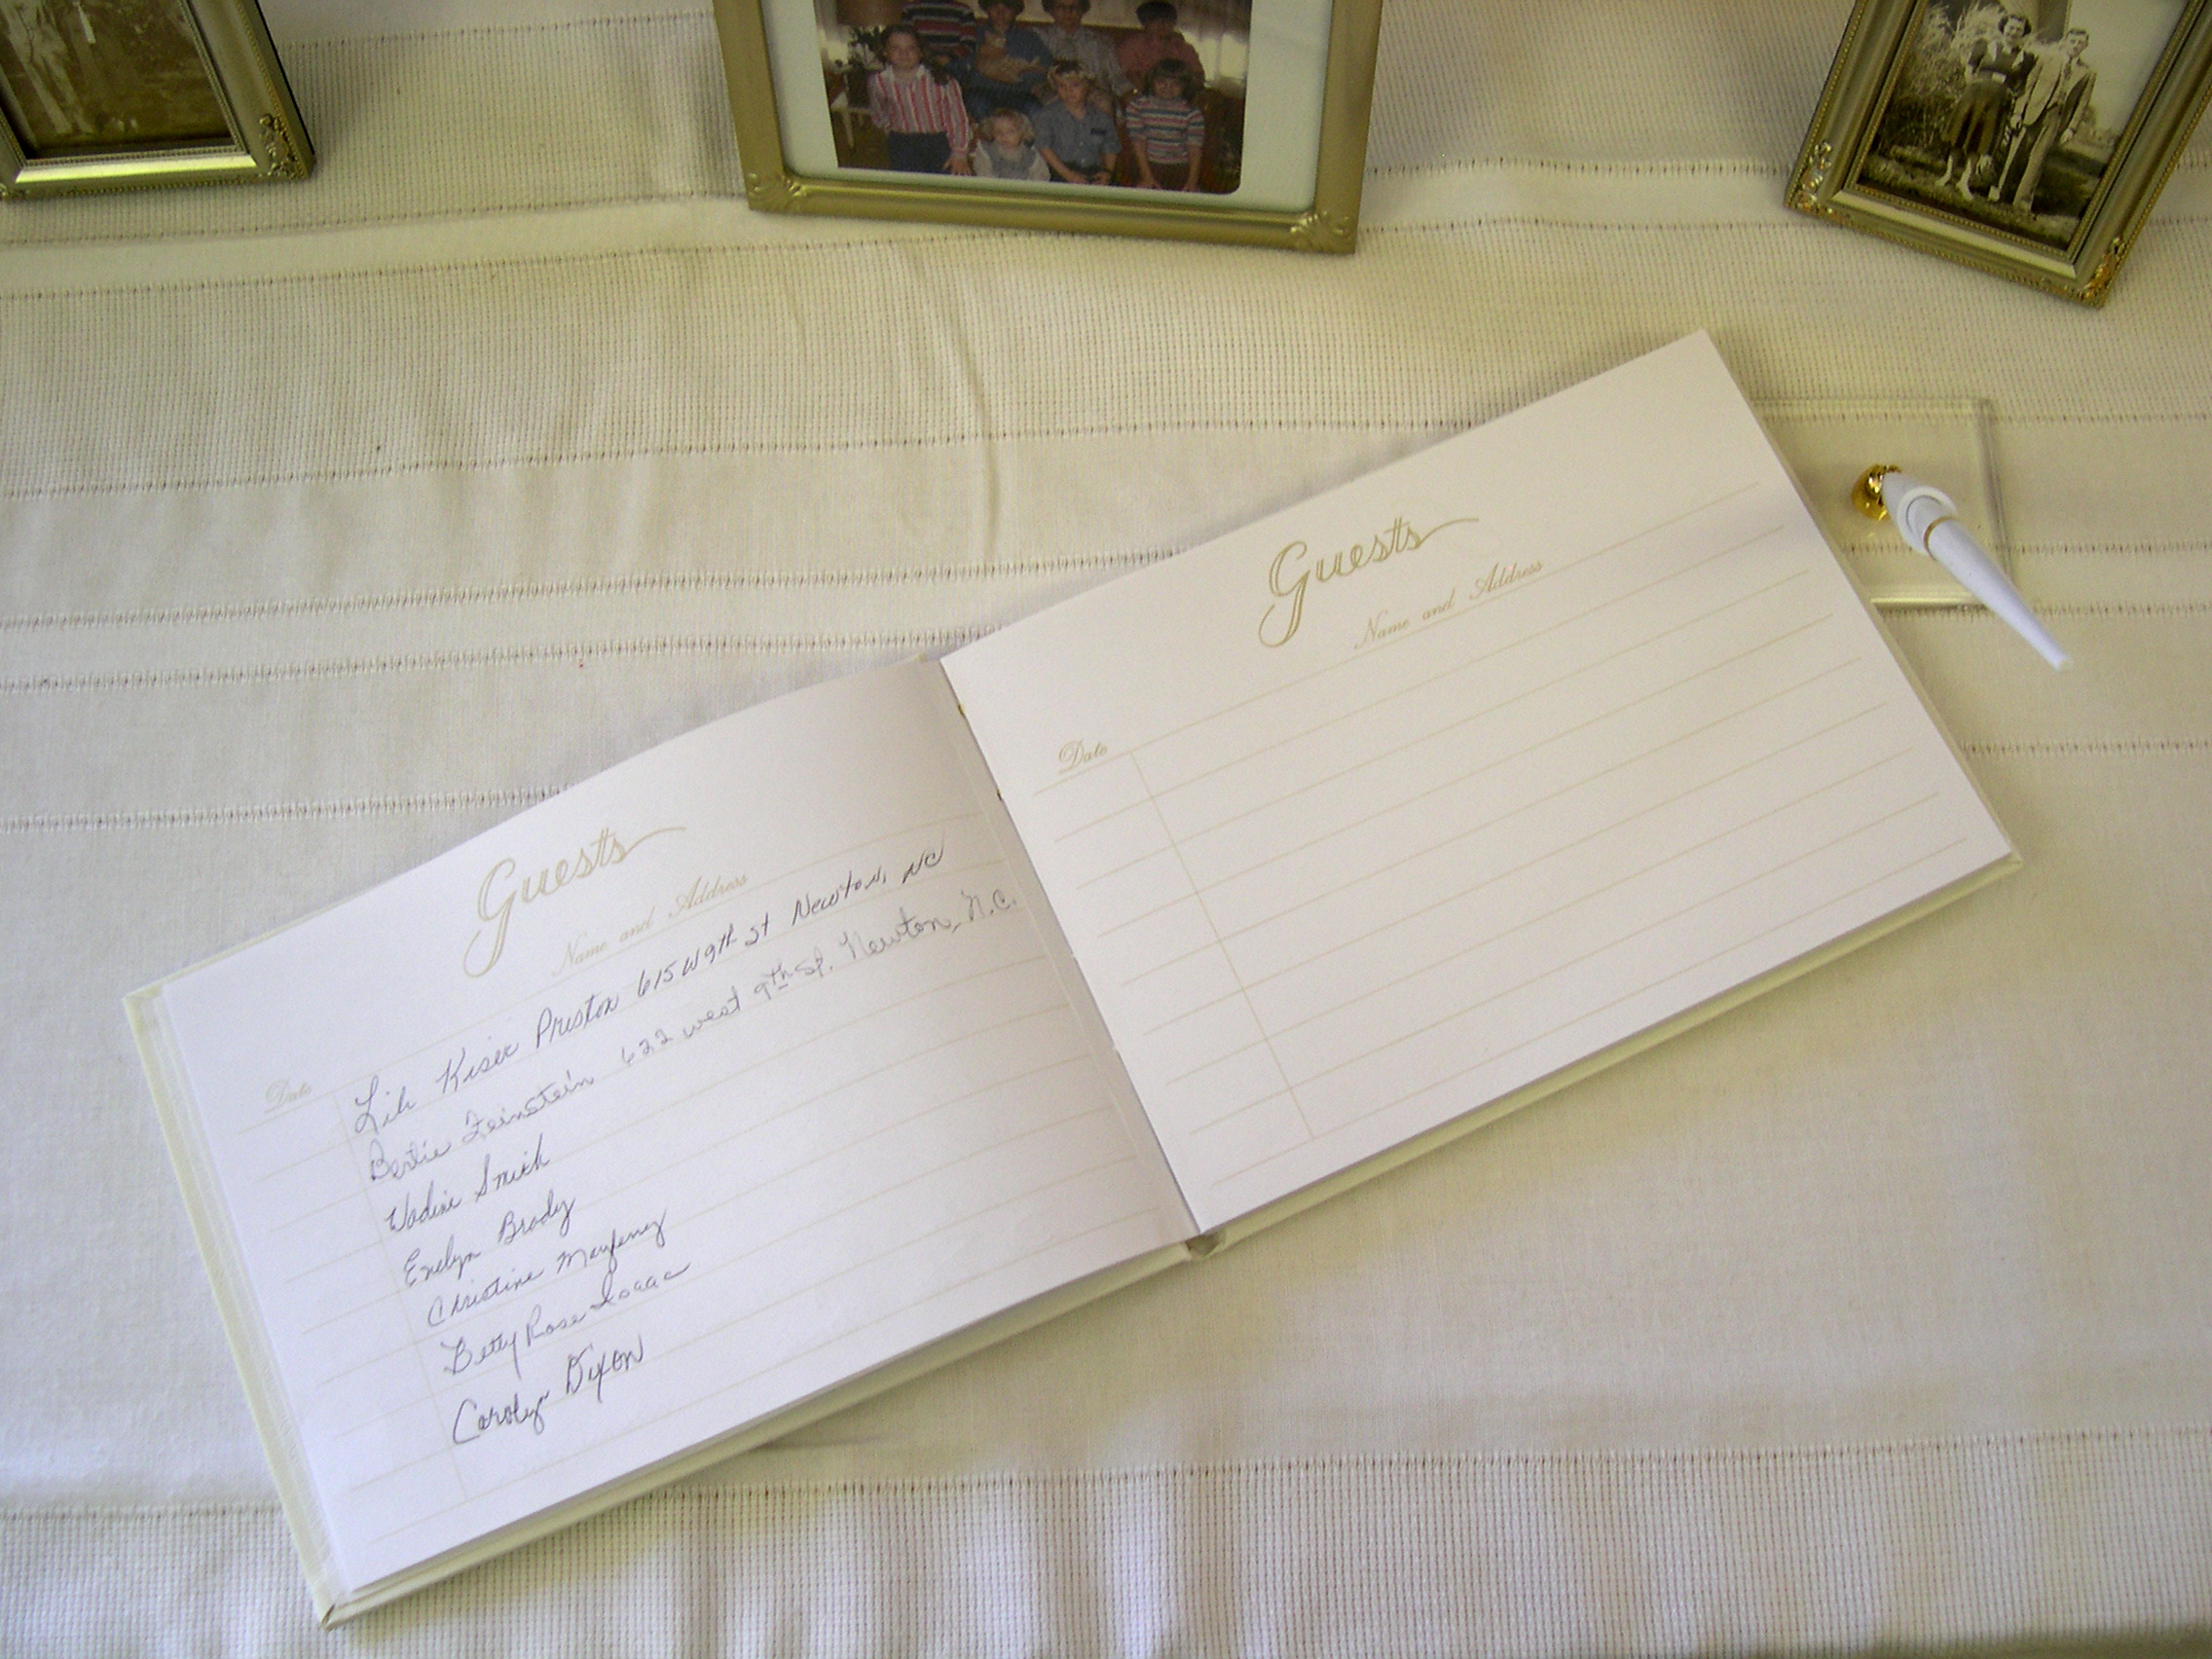 Guests
Name and Address
Date
Kiser Preston 615 W 9th St Newton, NC
Bertie Feinstein 622 west 9th St. Newton, N.C.
Nadine Smith
Evelyn Brady
Christine
Betty Rose Isaac
Carolyn Dixon
Guests
Name and Address
Date